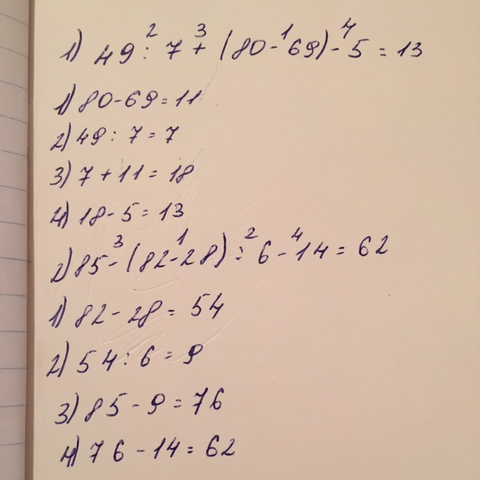 2 3 1 4
1) 49 : 7 + (80 - 69) - 5 = 13
1) 80 - 69 = 11
2) 49 : 7 = 7
3) 7 + 11 = 18
4) 18 - 5 = 13
3 1 2 4
2) 85 - (82 - 28) : 6 - 14 = 62
1) 82 - 28 = 54
2) 54 : 6 = 9
3) 85 - 9 = 76
4) 76 - 14 = 62